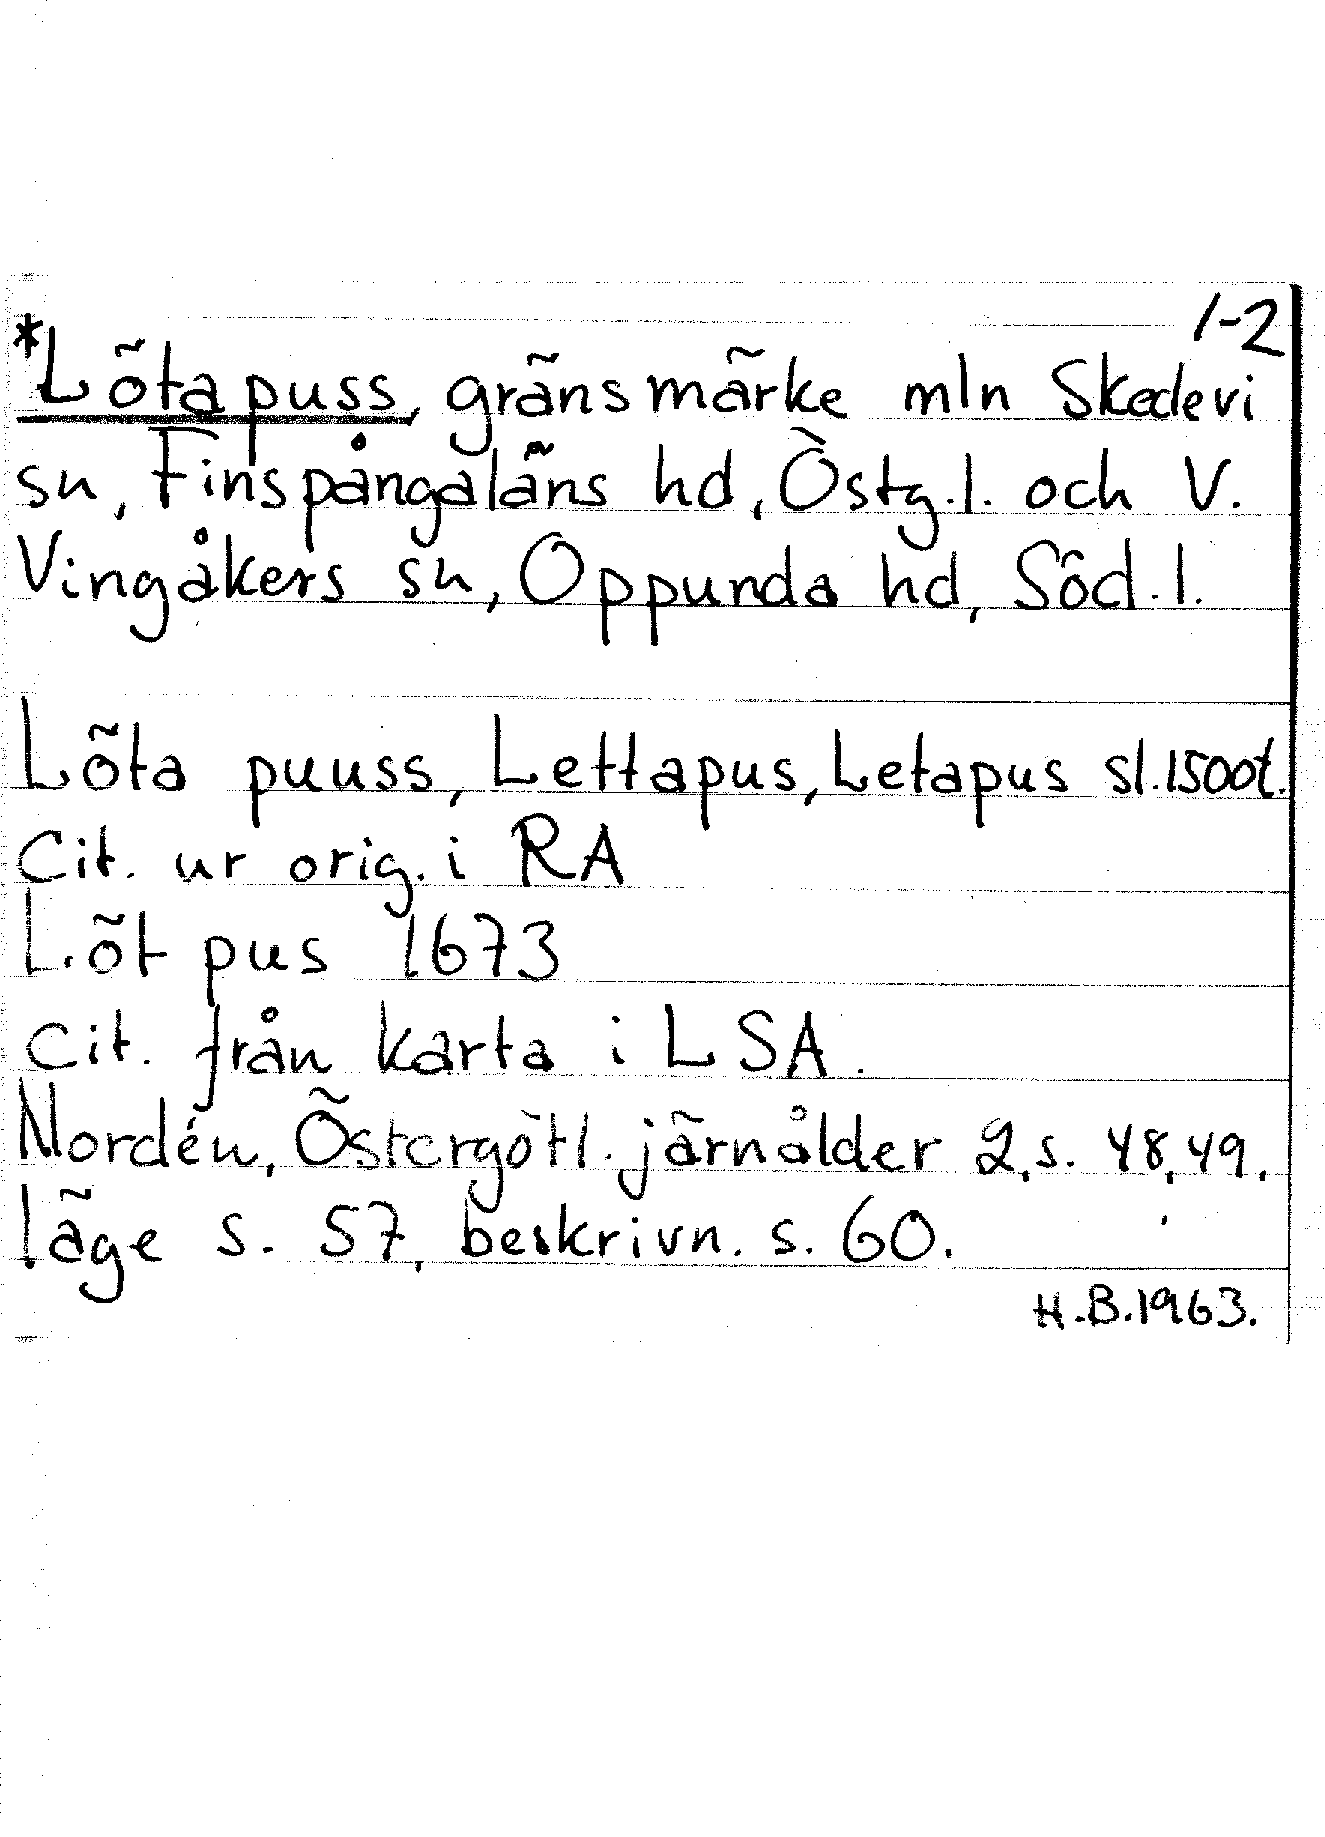 1-2
*Lötapuss, gränsmärke mln Skedevi
sn, Finspångaläns hd, Östg.l. och V.
Vingåkers sn, Oppunda hd, Söd.l.
Löta puuss, Lettapus, Letapus sl.1500t.
Cit. ur orig. i RA
Löt pus 1673
Cit. från karta i LSA.
Nordén, Östergötl. järnålder 2, s. 48, 49.
läge s. 57, beskrivn. s. 60.
H.B.1963.